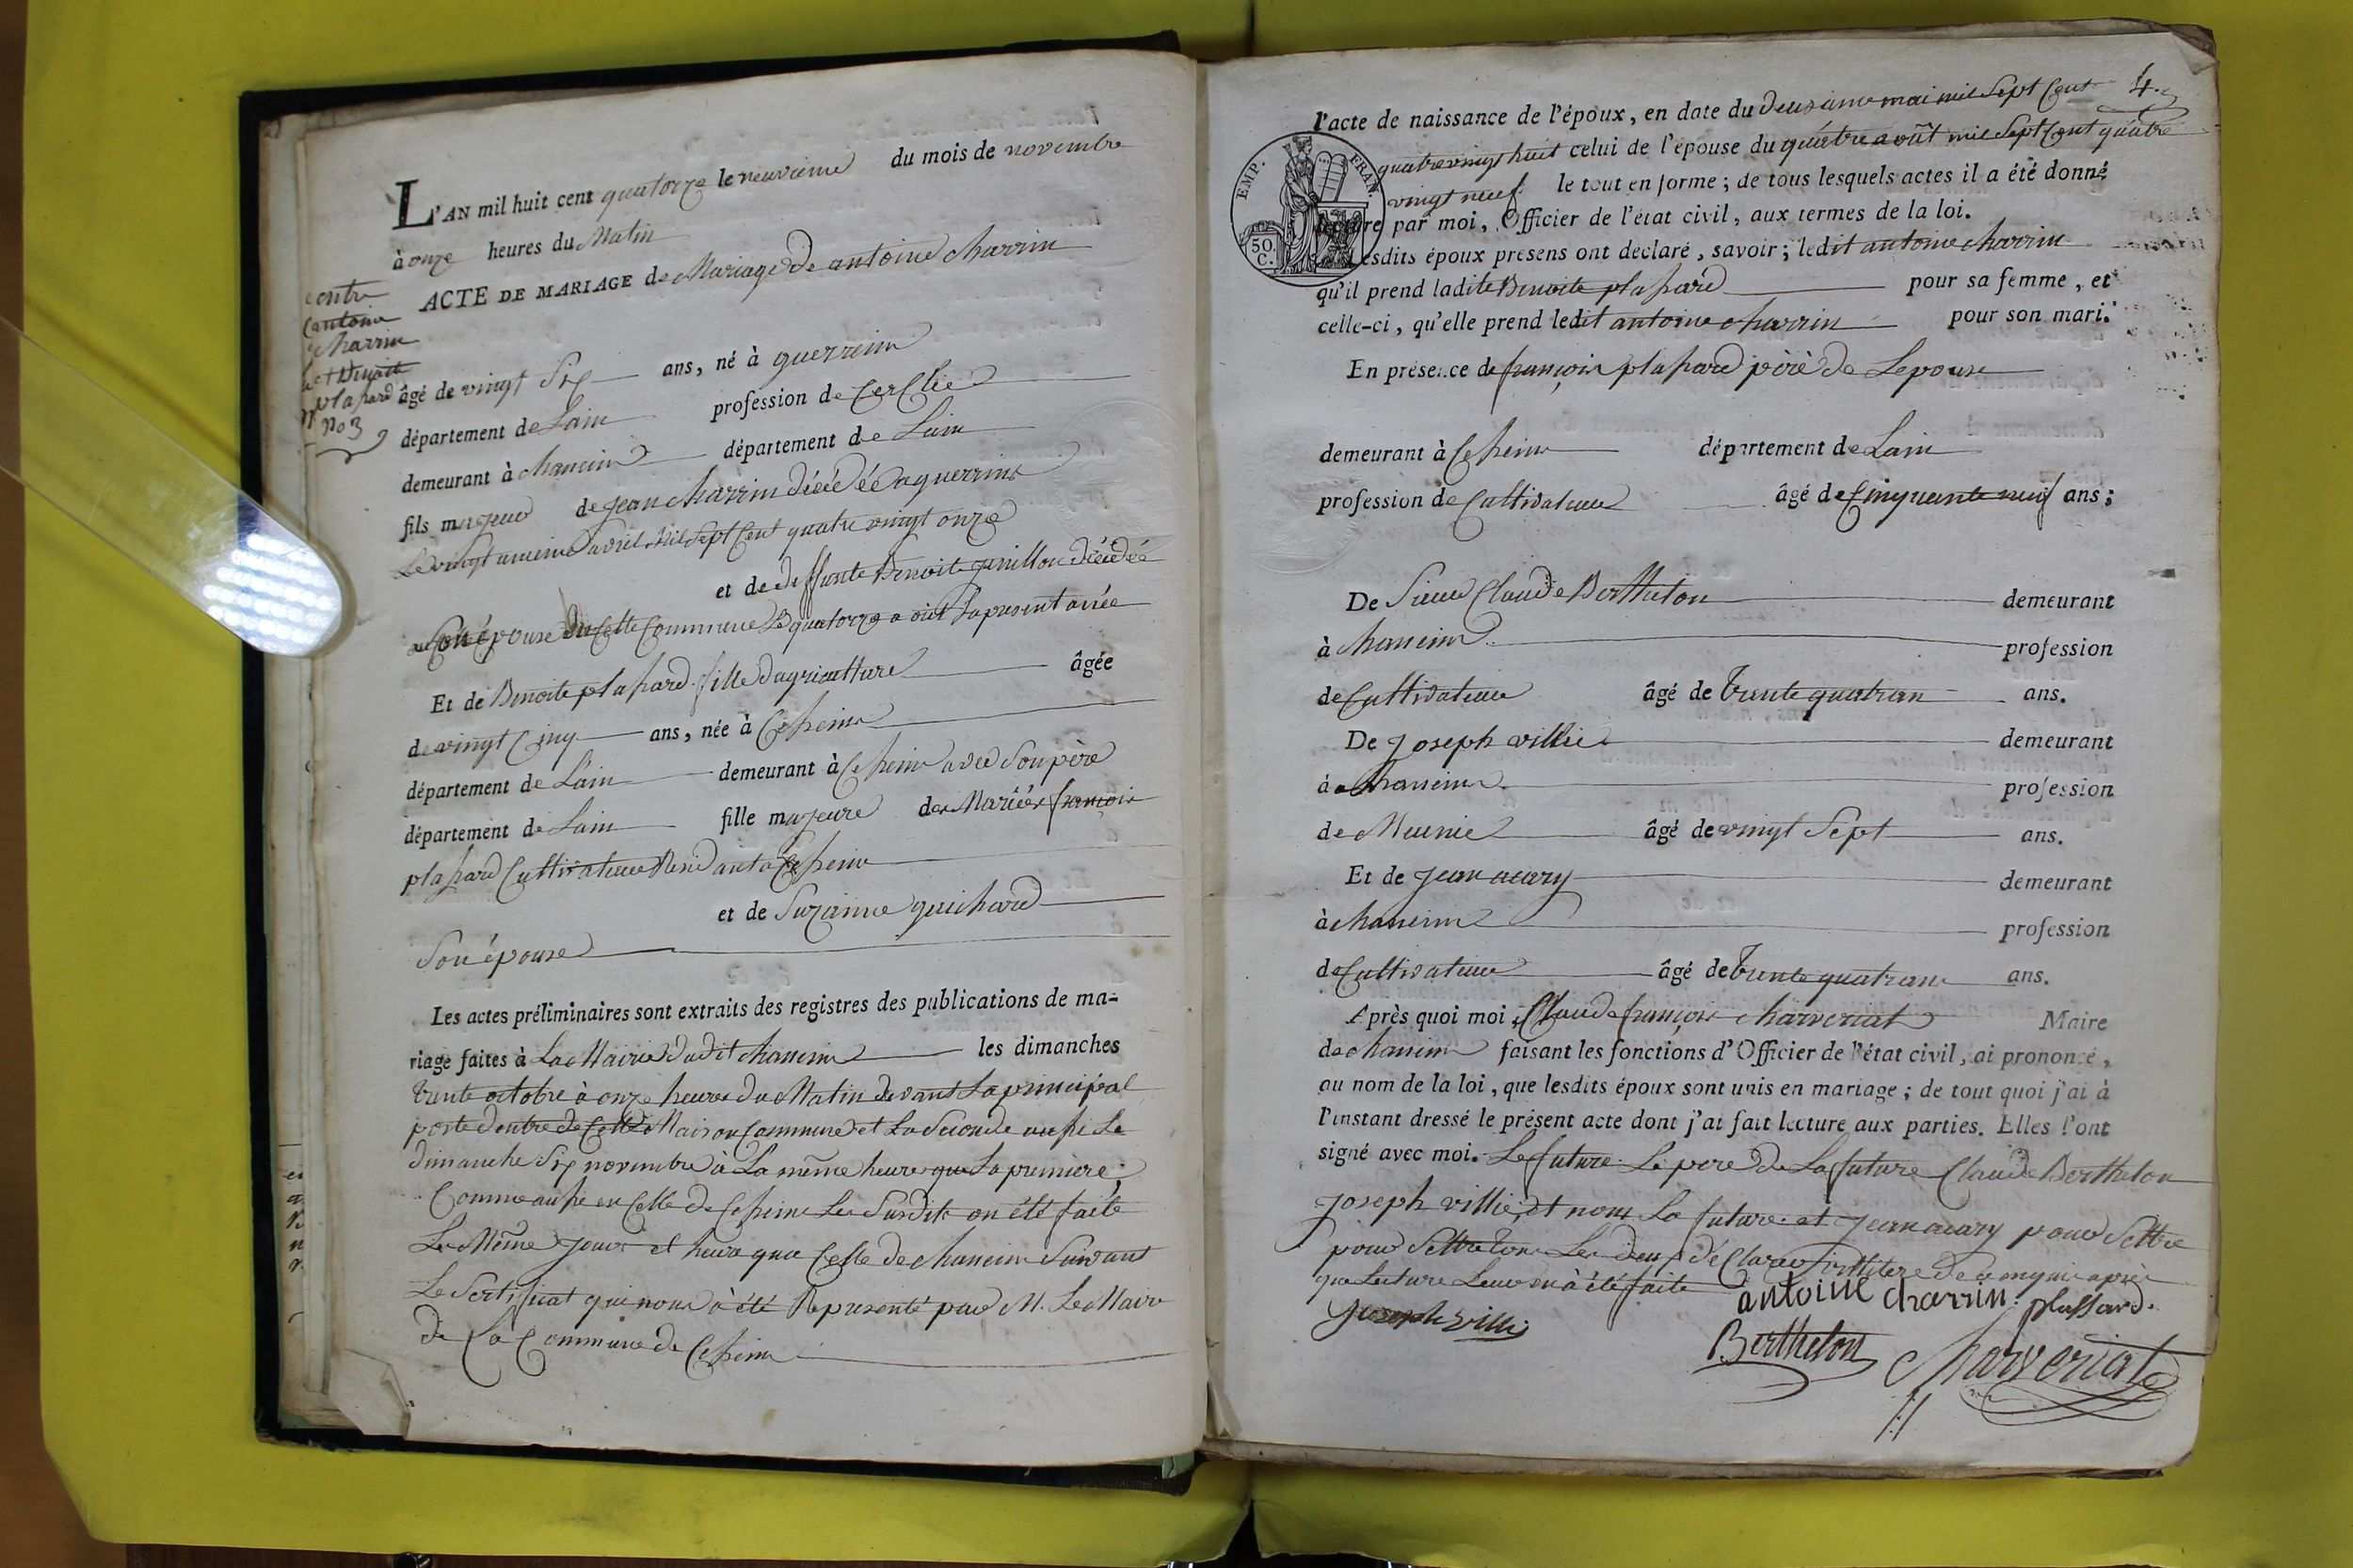 L'AN mil huit cent quatorze le neuvieme du mois de novembre
à onze heures du Matin
ACTE DE MARIAGE de Mariage de antoine charrin
entre
antoine
charrin
et Benoite
plassard
No 3
âgé de vingt Six ans, né à guerreins
département de Lain profession de Cerclier
demeurant à chanein département de Lain
fils majeur de jean charrin décédé a guerrins
Le vingt unieme avril Mil Sept Cent quatre vingt onze
et de deffunte Benoite janillon décédée
Son épouse en Cette Commune Le quatorze a oût La present année
Et de Benoite plassard fille dagriculture âgée
de vingt Cinq ans, née à Cesseins
département de Lain demeurant à Cesseins avec Son père
département de Lain fille majeure des Mariés françois
plassard Cultivateur Residant à Cesseins
et de Suzanne guichard
Son épouse
Les actes préliminaires sont extraits des registres des publications de ma-
riage faites à La Mairie dudit chaneins les dimanches
trente octobre à onze heures du Matin devant La principal
porte dentre de Cette Maison Commune et La Seconde aussi Le
dimanche Six novembre à La même heure que La premiere;
Comme aussi en Celle de Cesseins Les Susdits on été faite
Le Même jour et heure que Celle de chaneins Suivant
Le Sertificat qui nous à été Representé par M. Le Maire
de La Commune de Cesseins
4.
l'acte de naissance de l'époux, en date du deuxieme mai mil Sept Cent
quatrevingt huit celui de l'épouse du quatre août mil Sept Cent quatre
vingt neuf le tout en forme; de tous lesquels actes il a été donné
EMP. FRAN.
50. C.
lecture par moi, Officier de l'état civil, aux termes de la loi.
Lesdits époux présens ont déclaré, savoir; ledit antoine charrin
qu'il prend ladite Benoite plassard pour sa femme, et
celle-ci, qu'elle prend ledit antoine charrin pour son mari.
En présence de françois plassard père de Lepouse
demeurant à Cesseins département de Lain
profession de Cultivateur âgé de Cinquante neuf ans;
De Sieur Claude Berthelon demeurant
à chaneins profession
de Cultivateur âgé de trente quatr an ans.
De Joseph villié demeurant
à chaneins profession
de Meunié âgé de vingt Sept ans.
Et de Jean aucry demeurant
à chaneins profession
de Cultivateur âgé de trente quatr ans ans.
Après quoi moi, Claude françois charveriat Maire
de chaneins faisant les fonctions d'Officier de l'état civil, ai prononcé,
au nom de la loi, que lesdits époux sont unis en mariage; de tout quoi j'ai à
l'instant dressé le présent acte dont j'ai fait lecture aux parties. Elles l'ont
signé avec moi. Le future Le pere de La future Claude Berthelon
Joseph villié et nous La future et jean aucry pour Settre
Les deux déClaré illitere de enquis après
que Lecture Leur en à été faite
antoine charrin plassard.
Joseph villié
Berthelon charveriat